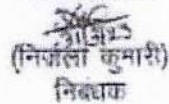 (निर्मला कुमारी)
निबंधक